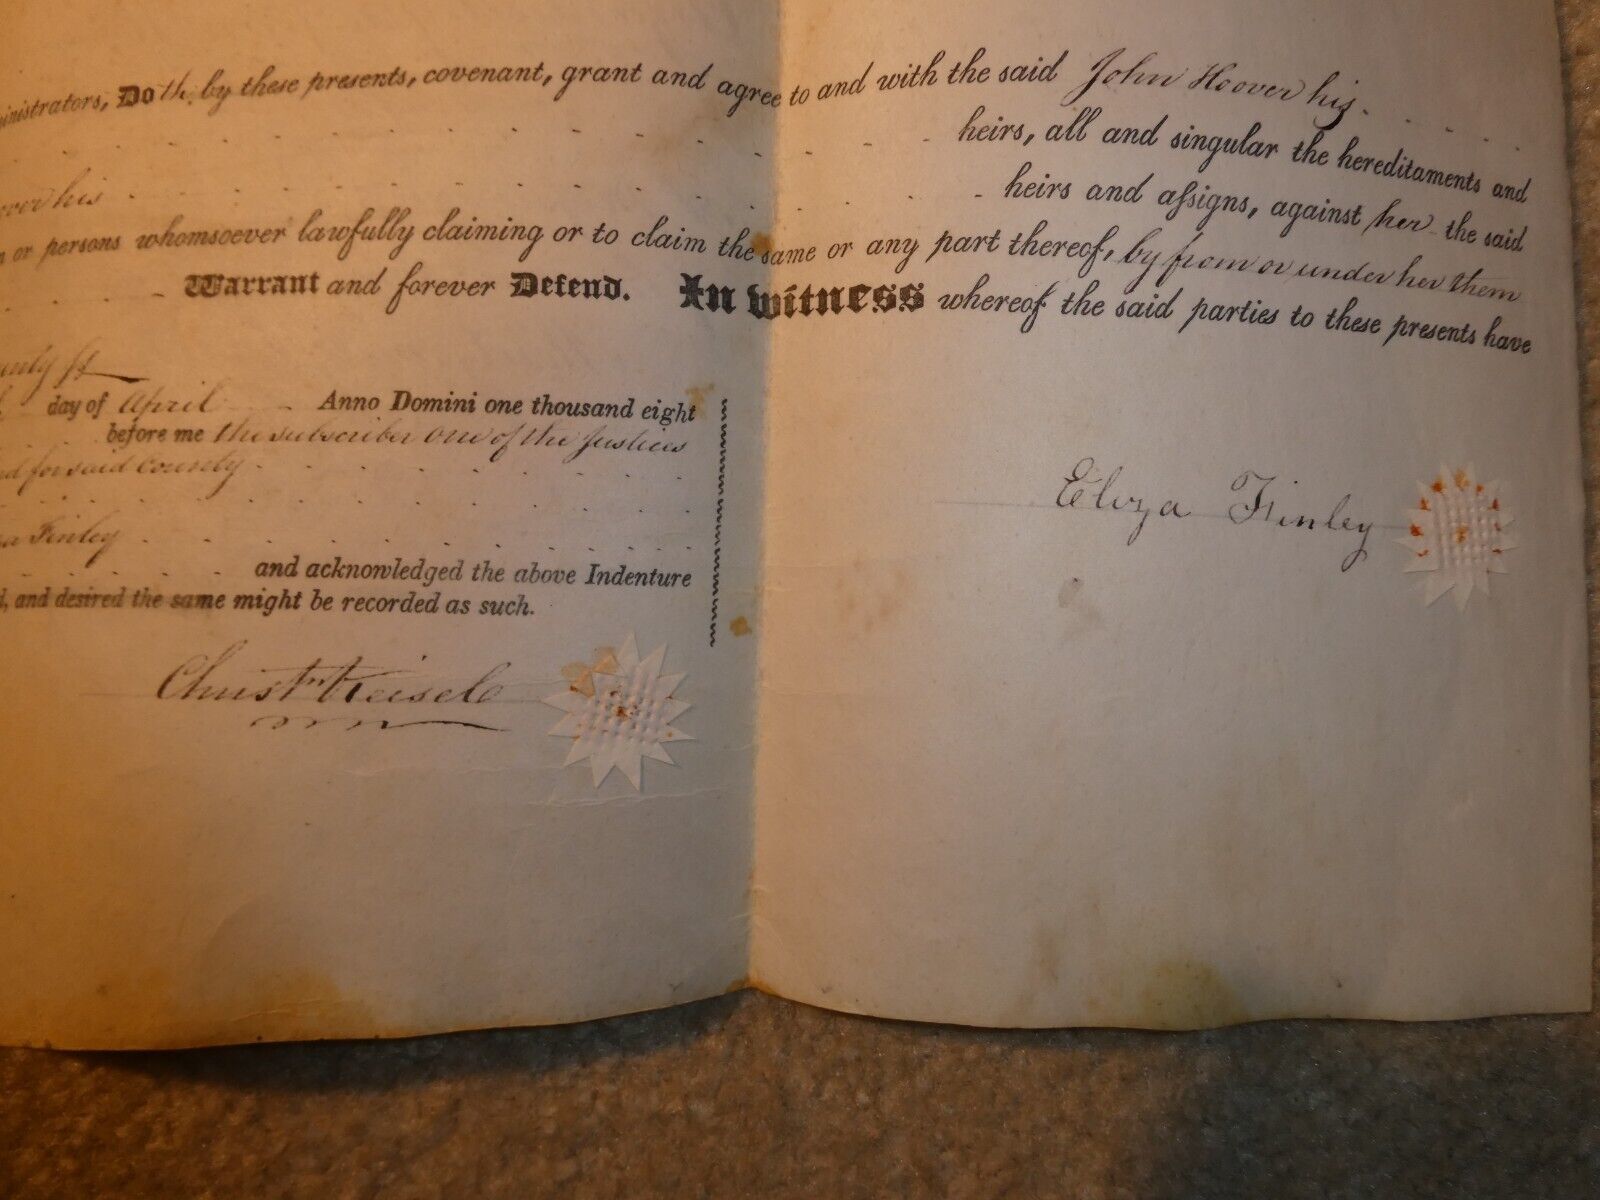 ministrators, Doth by these presents, covenant, grant and agree to and with the said John Hoover his
heirs, all and singular the hereditaments and
over his heirs and aſsigns, against her the said
or persons whomsoever lawfully claiming or to claim the same or any part thereof, by from or under her them
Warrant and forever Defend. In witness whereof the said parties to these presents have
unty ss
day of April Anno Domini one thousand eight
before me the subscriber one of the Justices
nd for said County
za Finley
and acknowledged the above Indenture
d, and desired the same might be recorded as such.
Eliza Finley